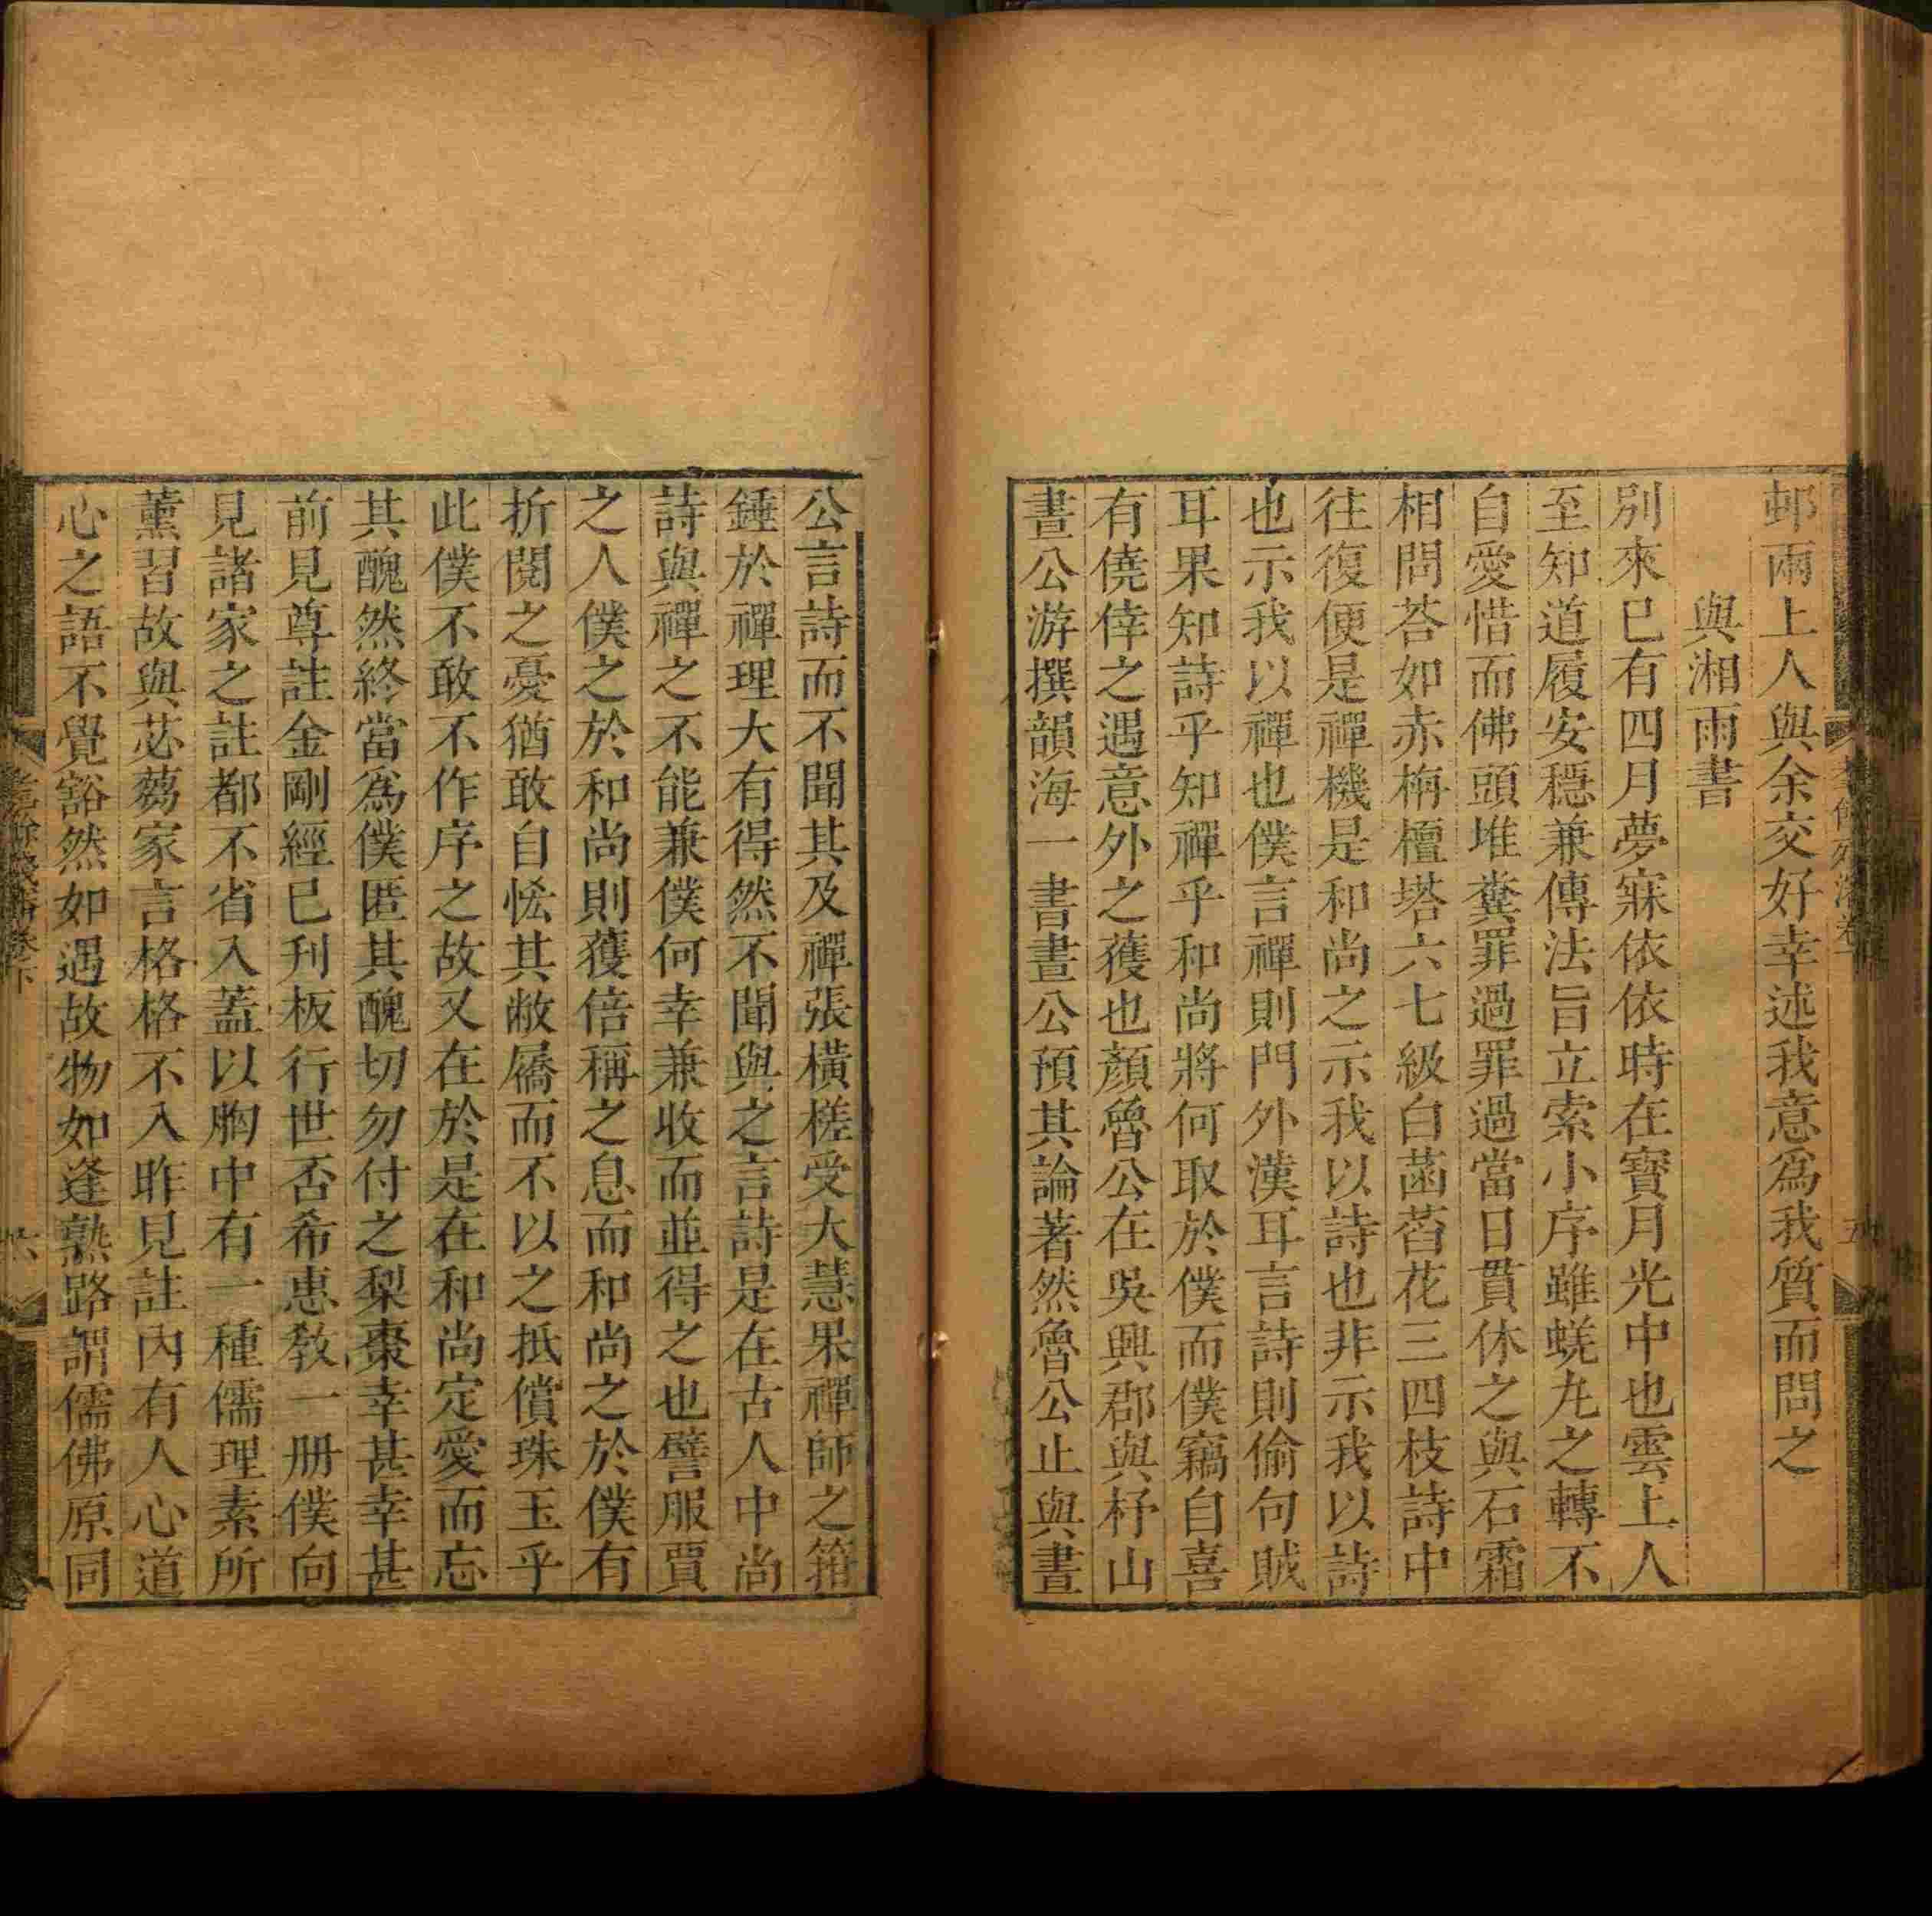 邨雨上人與余交好幸述我意爲我質而問之
與湘雨書
別來已有四月夢寐依依時在寶月光中也雲上人
至知道履安穩兼傳法旨立索小序雖蜣丸之轉不
自愛惜而佛頭堆糞罪過罪過當日貫休之與石霜
相問荅如赤栴檀塔六七級白菡萏花三四枝詩中
往復便是禪機是和尚之示我以詩也非示我以詩
也示我以禪也僕言禪則門外漢耳言詩則偷句賊
耳果知詩乎知禪乎和尚將何取於僕而僕竊自喜
有僥倖之遇意外之獲也顏魯公在吳興郡與杼山
晝公游撰韻海一書晝公預其論著然魯公止與晝
公言詩而不聞其及禪張橫槎受大慧果禪師之箝
錘於禪理大有得然不聞與之言詩是在古人中尚
詩與禪之不能兼僕何幸兼收而並得之也譬服賈
之人僕之於和尚則獲倍稱之息而和尚之於僕有
折閱之憂猶敢自恡其敝屩而不以之抵償珠玉乎
此僕不敢不作序之故又在於是在和尚定愛而忘
其醜然終當爲僕匿其醜切勿付之梨棗幸甚幸甚
前見尊註金剛經已刊板行世否希惠教一册僕向
見諸家之註都不省入蓋以胸中有一種儒理素所
薰習故與苾蒭家言格格不入昨見註内有人心道
心之語不覺豁然如遇故物如逢熟路謂儒佛原同